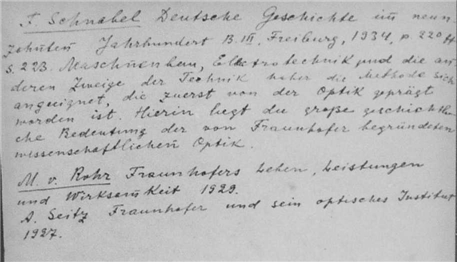 F. Schnabel Deutsche Geschichte im neun
zehnten Jahrhundert B. III, Freiburg, 1934, p 220 ff
S. 223. Maschinenbau, Elektrotechnik und die an
deren Zweige der Technik haben die Methode sich
angeeignet, die zuerst von der Optik geprägt
worden ist. Hierin liegt die große geschichtli
che Bedeutung der von Fraunhofer begründeten
wissenschaftlichen Optik.
M. v. Rohr Fraunhofers Leben, Leistungen
und Wirksamkeit 1929.
A. Seitz Fraunhofer und sein optisches Institut
1927.